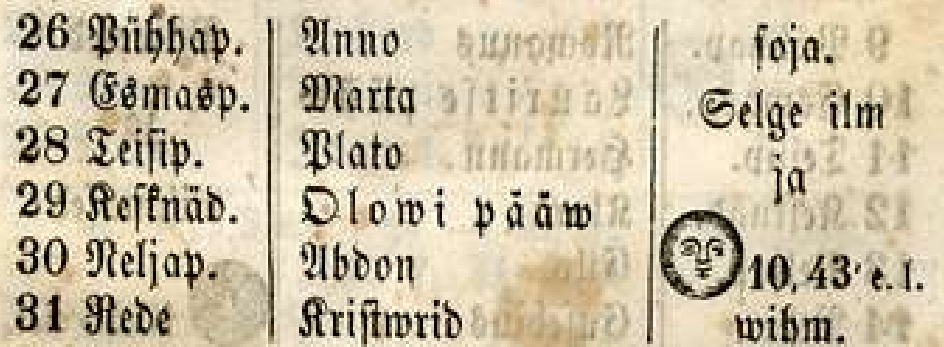 26 Pühhap. Anno soja.
27 Esmasp. Marta Selge ilm
28 Teisip. Plato ja
29 Kesknäd. Olowi pääw
30 Neljap. Abdon 10, 43' e. l.
31 Rede Kristwrid wihm.